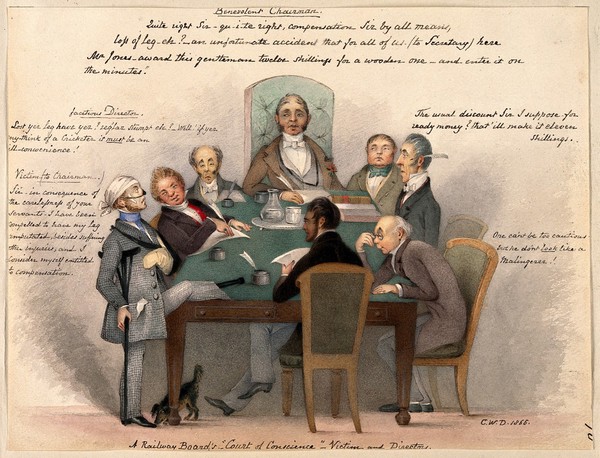 Benevolent Chairman.
Quite right Sir - qu-i-te right, compensation Sir by all means,
loss of leg - eh? - an unfortunate accident that for all of us. (to Secretary) here
Mr Jones - award this gentleman twelve shillings for a wooden one - and enter it on
the minutes.
facetious Director.
Lost yer leg have yer? reg'lar stump't eh! - Well! if yer
ever think of a Cricketer it must be an
ill-convenience!
Victim (to Chairman.)
Sir - in consequence of
the carelessness of your
Servants - I have been
compelled to have my leg
amputated, besides suffering
other injuries, and I
consider myself entitled
to compensation.
The usual discount Sir I suppose for
ready money? that'll make it eleven
Shillings.
One can't be too cautious
but he don't look like a
Malingerer!
C.W.D. 1855.
A Railway Board's "Court of Conscience" - Victim and Directors.